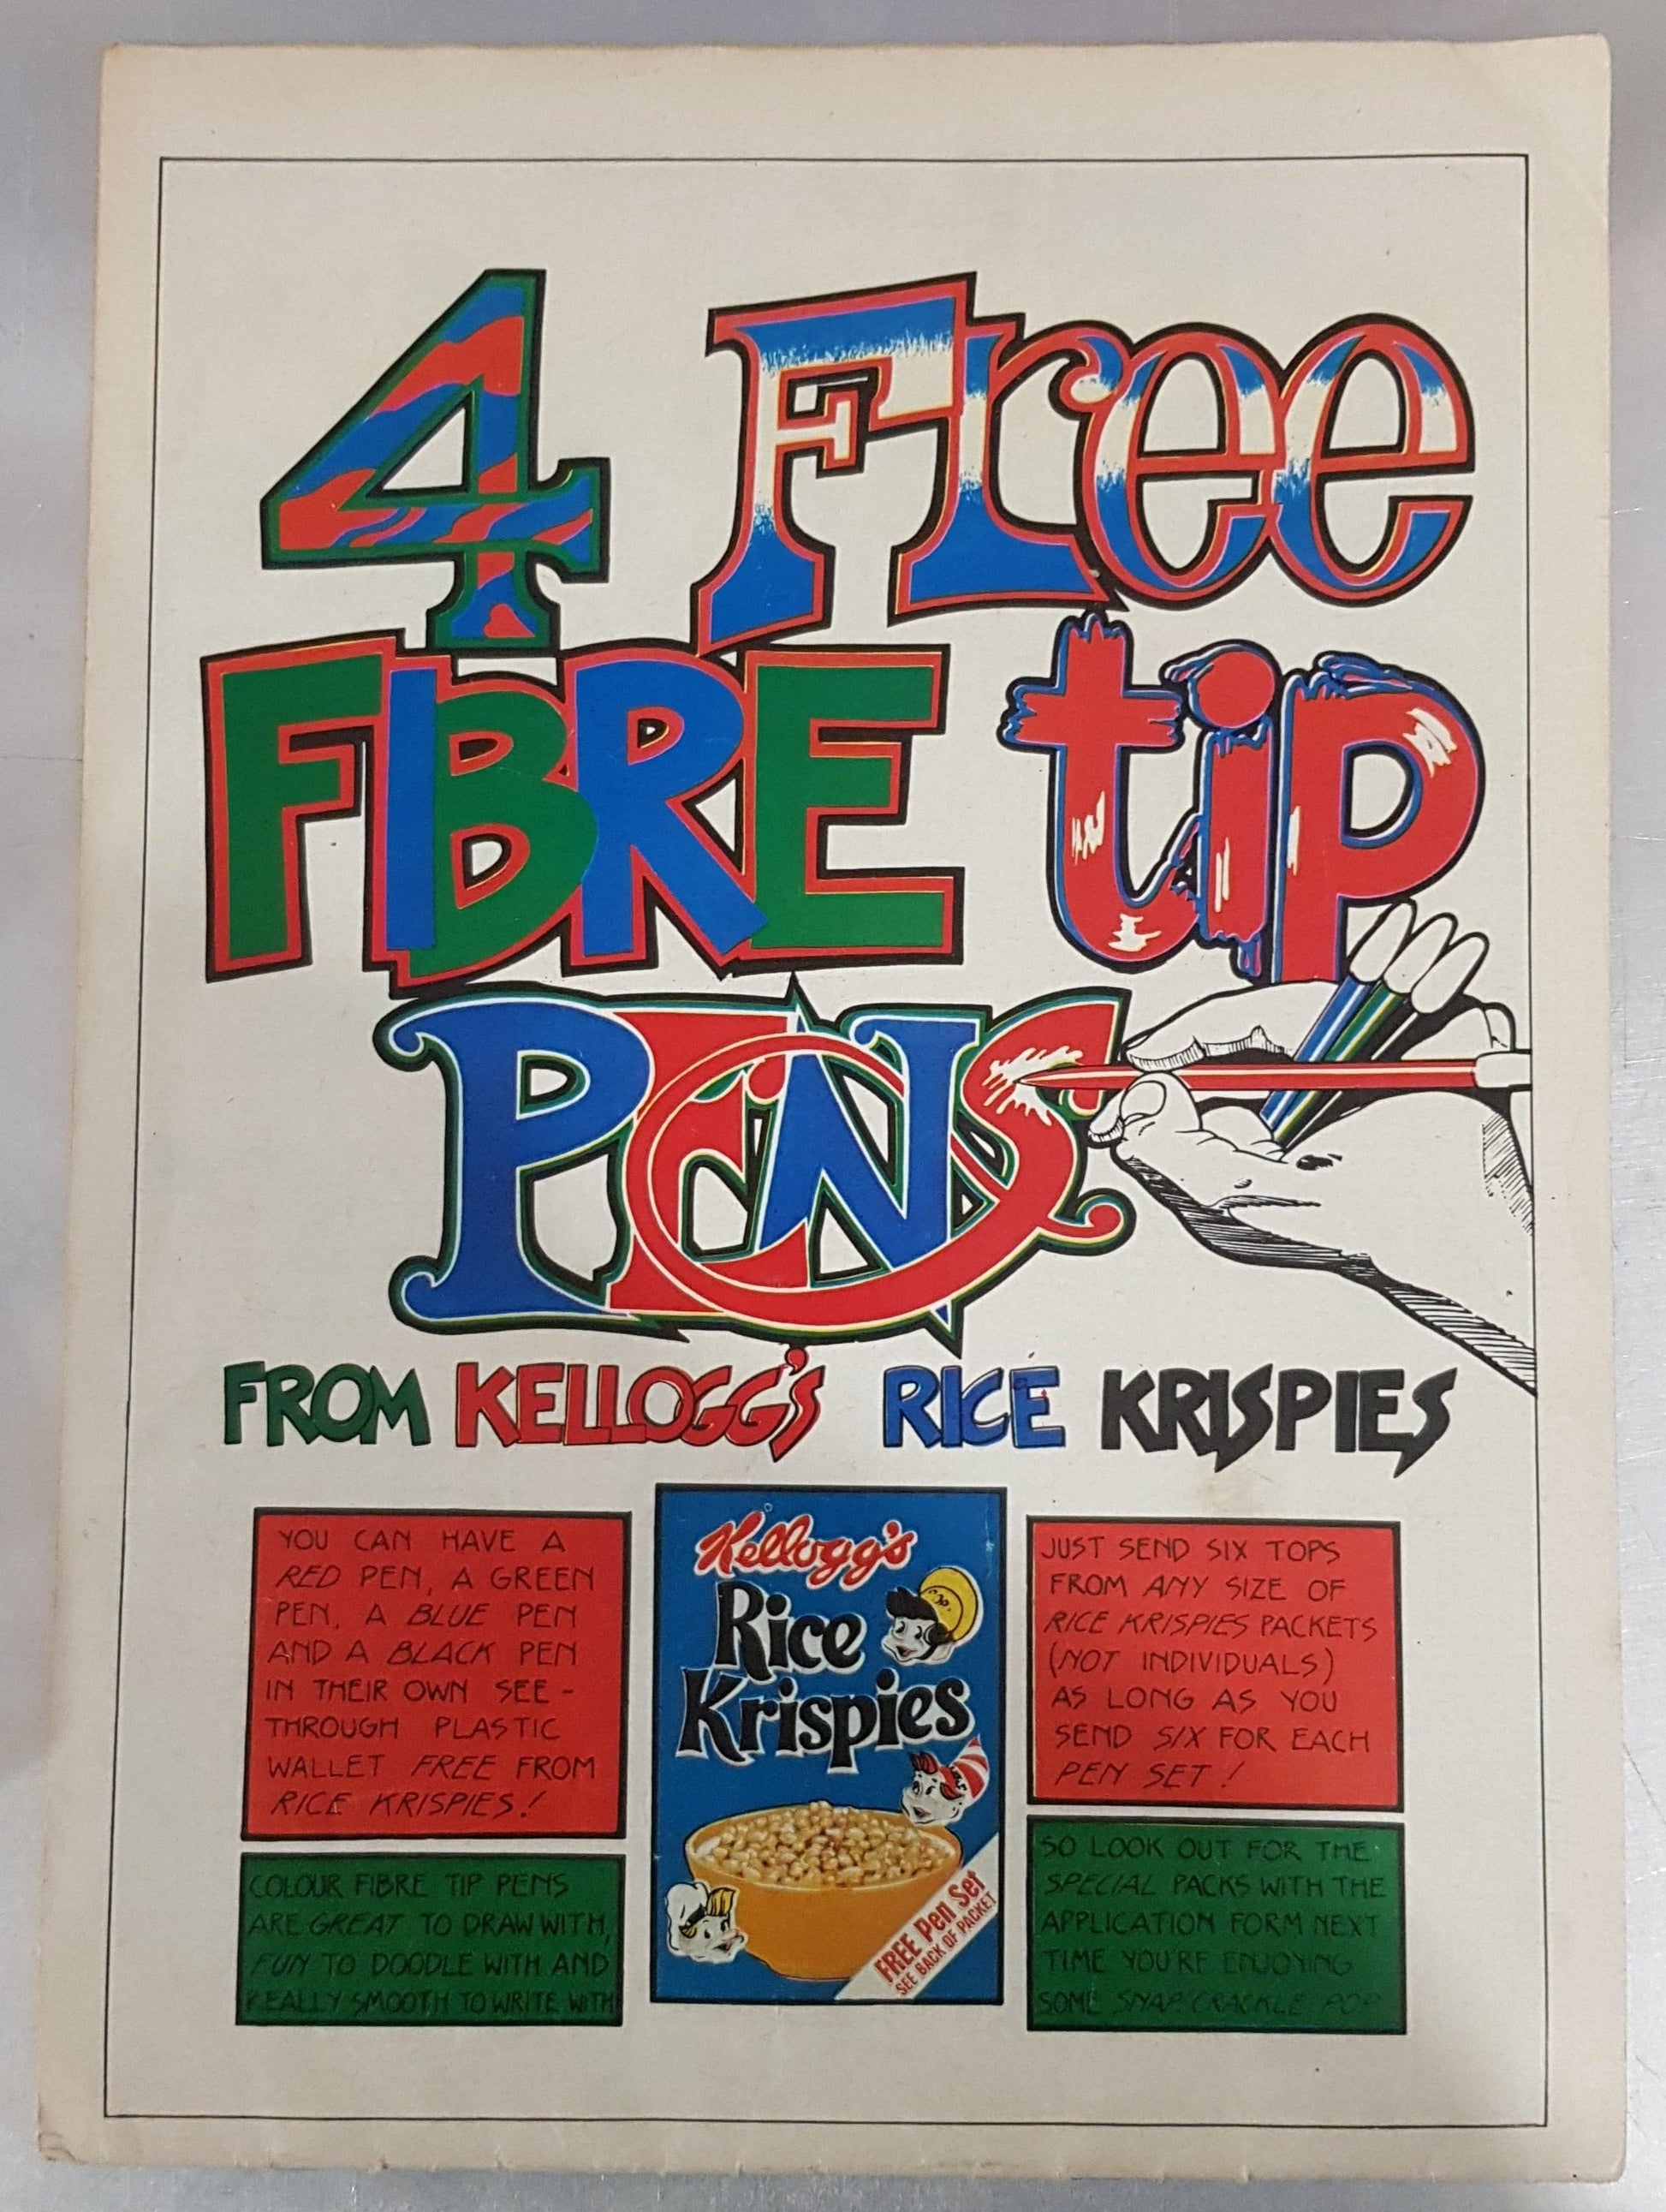 4 Free
FIBRE tip
PENS
FROM KELLOGG'S RICE KRISPIES
YOU CAN HAVE A
RED PEN, A GREEN
PEN, A BLUE PEN
AND A BLACK PEN
IN THEIR OWN SEE-
THROUGH PLASTIC
WALLET FREE FROM
RICE KRISPIES!
COLOUR FIBRE TIP PENS
ARE GREAT TO DRAW WITH,
FUN TO DOODLE WITH AND
REALLY SMOOTH TO WRITE WITH
Kellogg's
Rice
Krispies
FREE Pen Set
SEE BACK OF PACKET
JUST SEND SIX TOPS
FROM ANY SIZE OF
RICE KRISPIES PACKETS
(NOT INDIVIDUALS)
AS LONG AS YOU
SEND SIX FOR EACH
PEN SET!
SO LOOK OUT FOR THE
SPECIAL PACKS WITH THE
APPLICATION FORM NEXT
TIME YOU'RE ENJOYING
SOME SNAP CRACKLE POP